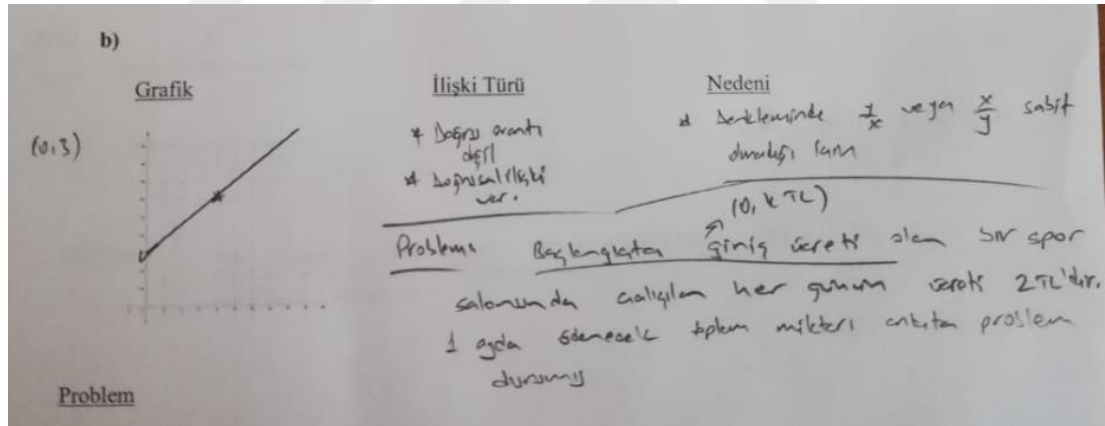 b)
Grafik
İlişki Türü
Nedeni
(0,3)
* Doğru orantı
değil
* Doğrusal ilişki
var.
* Denkleminde y/x veya x/y sabit
olmadığı için
(0, k TL)
Problem:
Başlangıçtan giriş ücreti olan bir spor
salonunda çalışılan her günün ücreti 2 TL'dir.
1 ayda ödenecek toplam miktarı anlatan problem
durumu
Problem